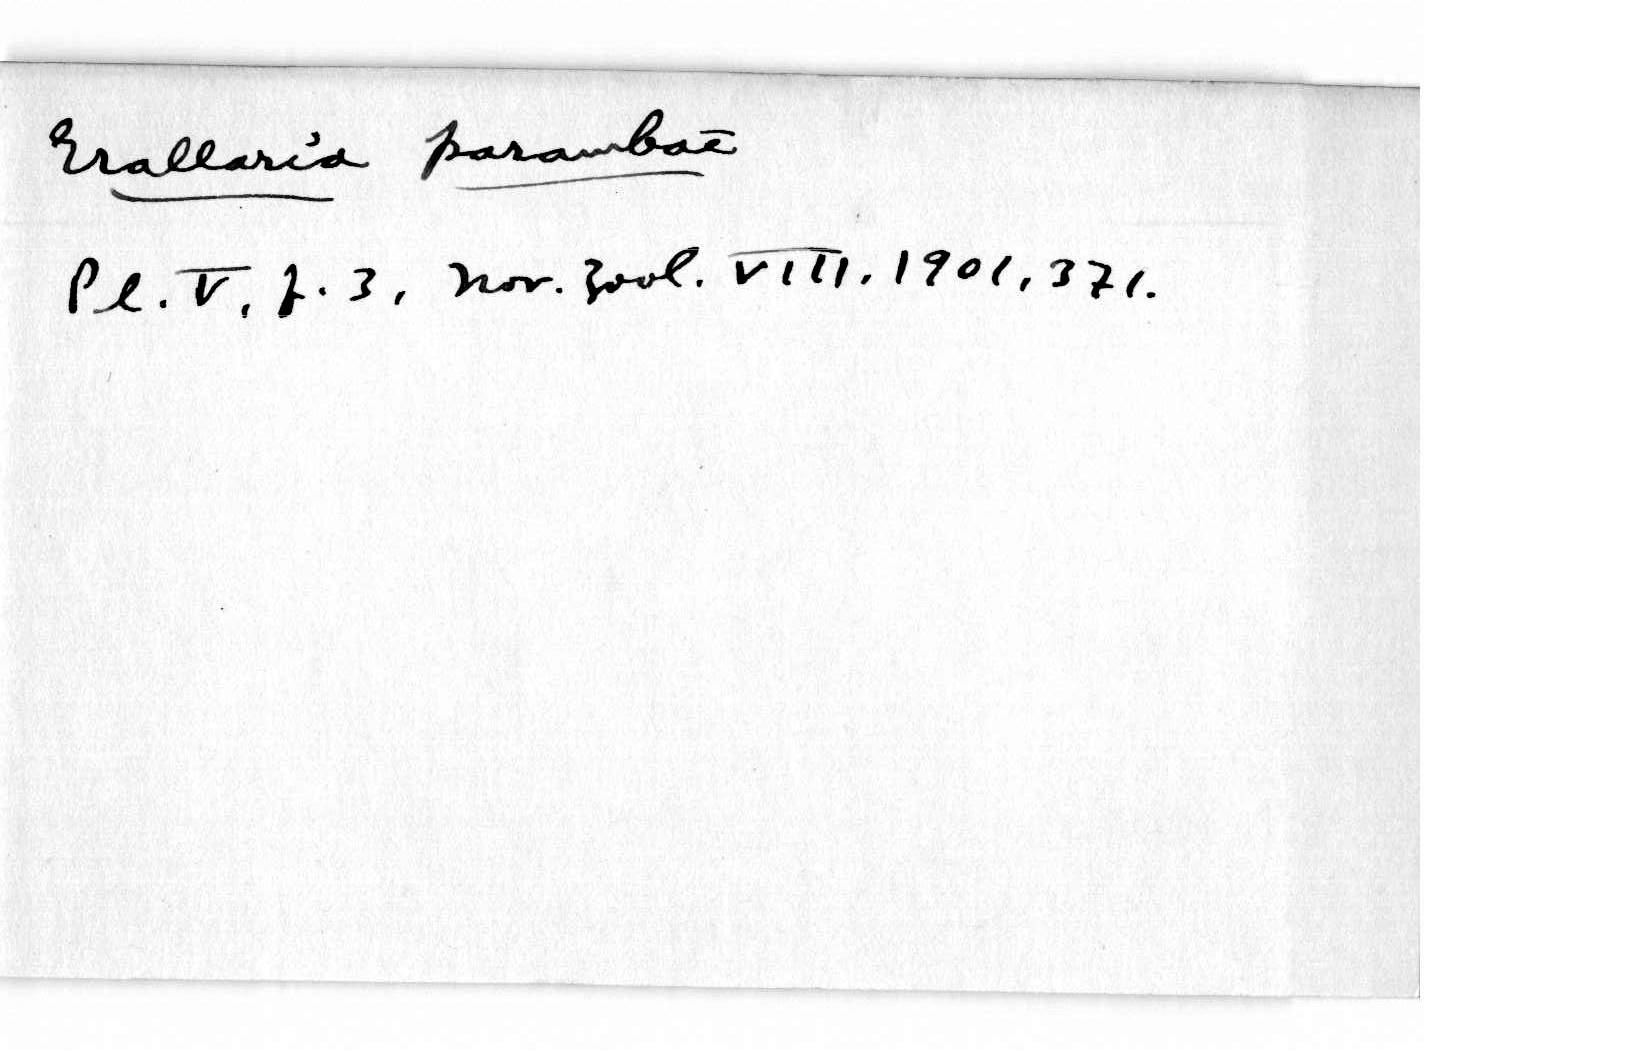 Grallaria parambae
Pl. V, f. 3, Nov. Zool. VIII, 1901, 371.